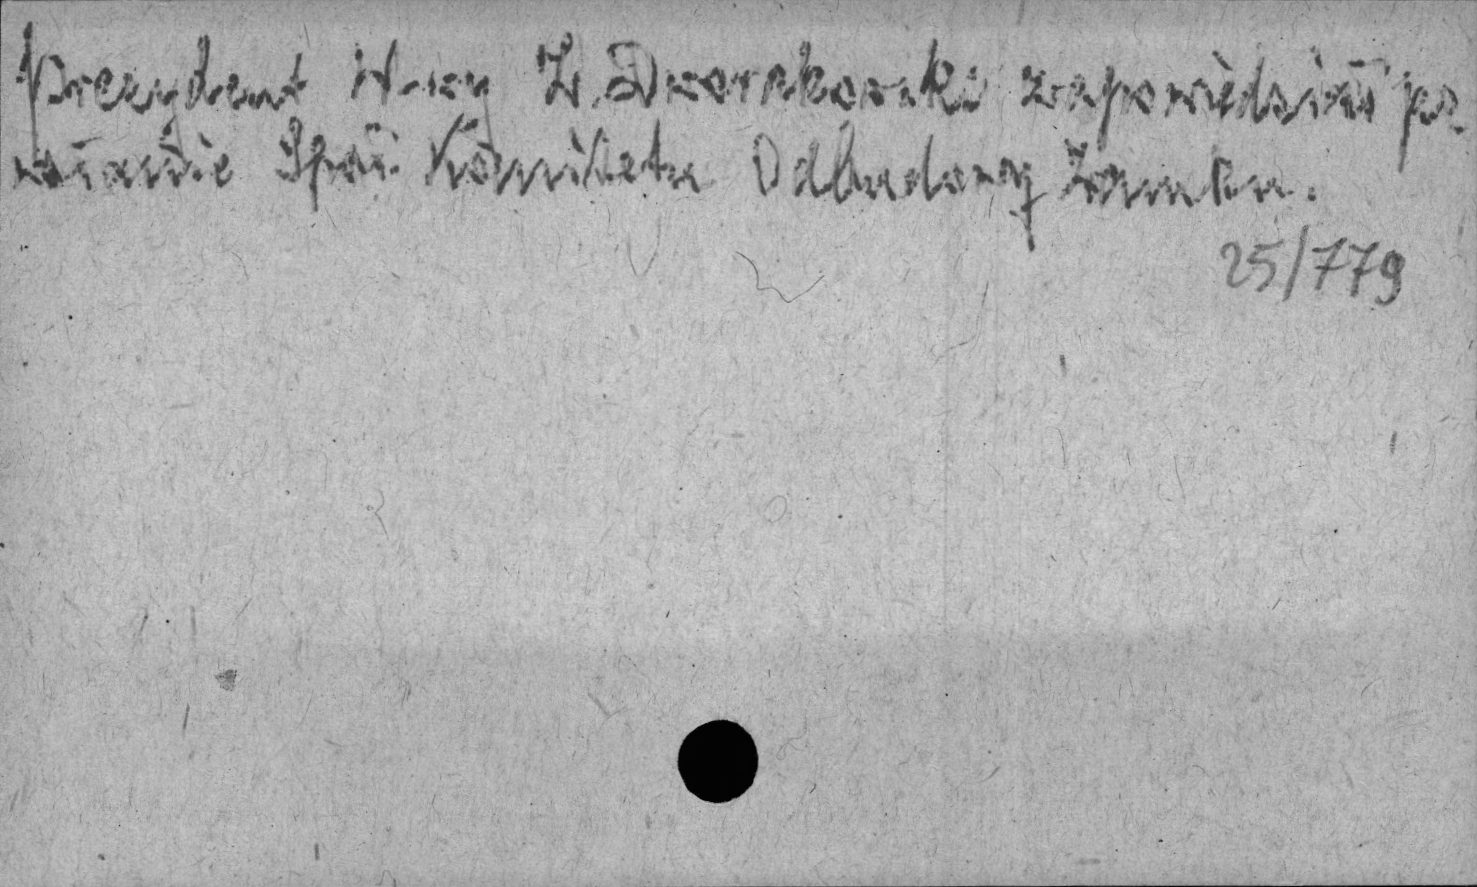 Prezydent W-wy Z. Dworakowski zapowiedział po-
wołanie Społ. Komitetu Odbudowy Zamku.
25/779